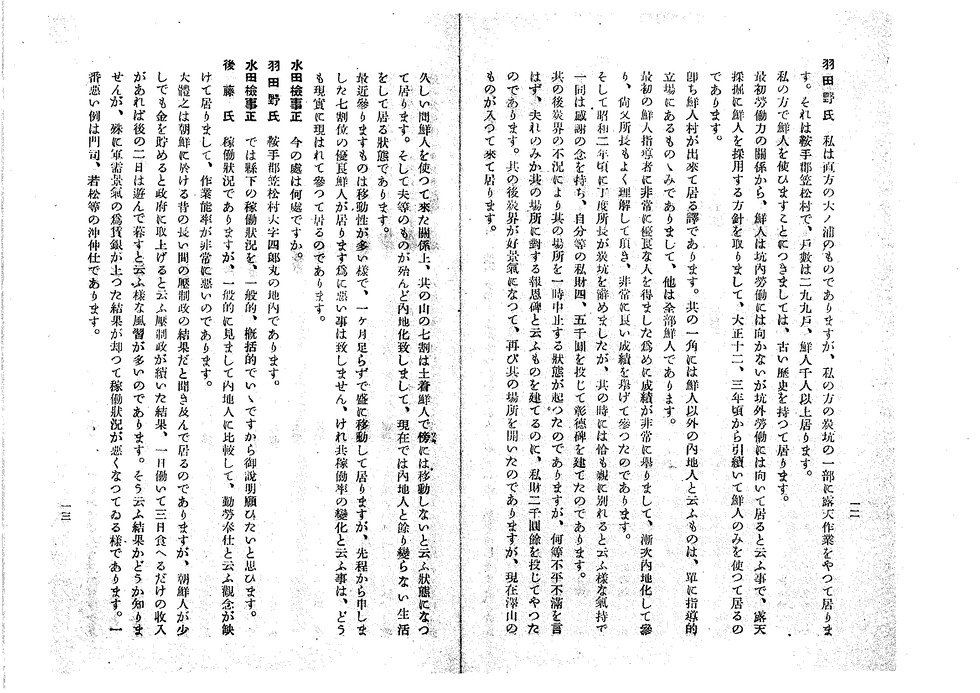 羽田野氏　私は直方の大ノ浦のものでありますが、私の方の炭坑の一部に露天作業をやつて居りま
す。それは鞍手郡笠松村で、戸數は二九九戸、鮮人千人以上居ります。
私の方で鮮人を使ひますことにつきましては、古い歴史を持つて居ります。
最初勞働力の關係から、鮮人は坑內勞働には向かないが坑外勞働には向いて居ると云ふ事で、露天
採掘に鮮人を採用する方針を取りまして、大正十二、三年頃から引續いて鮮人のみを使つて居るの
であります。
卽ち鮮人村が出來て居る譯であります。其の一角には鮮人以外の內地人と云ふものは、單に指導的
立場にあるものゝみでありまして、他は全部鮮人であります。
最初の鮮人指導者に非常に優良な人を得ました爲めに成績が非常に擧りまして、漸次內地化して參
り、尙又所長もよく理解して頂き、非常に良い成績を擧げて參つたのであります。
そして昭和二年頃に丁度所長が炭坑を辭めましたが、其の時には恰も親に別れると云ふ樣な氣持で
一同は感謝の念を持ち、自分等の私財四、五千圓を投じて彰德碑を建てたのであります。
其の後炭界の不況により其の場所を一時中止する狀態が起つたのでありますが、何等不平不滿を言
はず、夫れのみか其の場所に對する報恩碑と云ふものを建てるのに、私財二千圓餘を投じてやつた
のであります。其の後炭界が好景氣になつて、再び其の場所を開いたのでありますが、現在澤山の
ものが入つて來て居ります。
一二
久しい間鮮人を使つて來た關係上、其の山の七割は土着鮮人で傍には移動しないと云ふ狀態になつ
て居ります。そして夫等のものが殆んど內地化致しまして、現在では內地人と餘り變らない生活
をして居る狀態であります。
最近參りますものは移動性が多い樣で、一ヶ月足らずで盛に移動して居りますが、先程から申しま
した七割位の優良鮮人が居ります爲に惡い事は致しません、けれ共稼働率の變化と云ふ事は、どう
も現實に現はれて參つて居るのであります。
水田檢事正　今の處は何處ですか。
羽田野氏　鞍手郡笠松村大字四郎丸の地內であります。
水田檢事正　では縣下の稼働狀況を、一般的、槪括的でいゝですから御說明願ひたいと思ひます。
後藤氏　稼働狀況でありますが、一般的に見まして內地人に比較して、勤勞奉仕と云ふ觀念が缺
けて居りまして、作業能率が非常に惡いのであります。
大體之は朝鮮に於ける昔の長い間の壓制政の結果だと聞き及んで居るのでありますが、朝鮮人が少
しでも金を貯めると政府に取上げると云ふ壓制政が續いた結果、一日働いて三日食へるだけの收入
があれば後の二日は遊んで暮すと云ふ樣な風習が多いのであります。そう云ふ結果かどうか知りま
せんが、殊に軍需景氣の爲賃銀が上つた結果が却つて稼働狀況が惡くなつてゐる樣であります。一
番惡い例は門司、若松等の沖仲仕であります。
一三